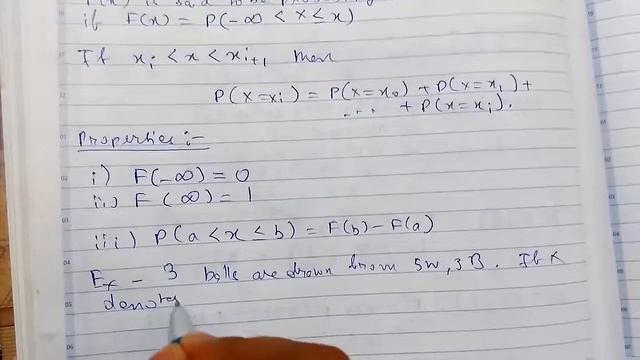 if F(x) = P(-∞ < x ≤ x)
If xi < x < xi+1 then
P(x=xi) = P(x=x0) + P(x=x1) +
... + P(x=xi).
Properties :-
i) F(-∞) = 0
ii) F(∞) = 1
iii) P(a < x ≤ b) = F(b) - F(a)
Ex - 3 balls are drawn from 5W, 3B. If X
denotes